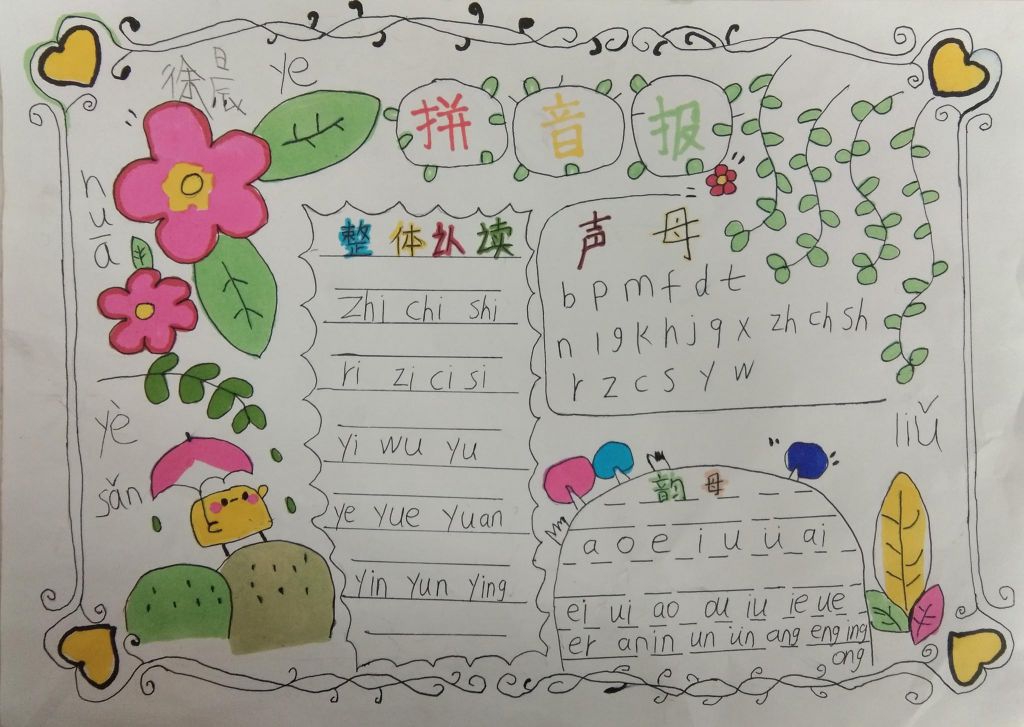 徐晨
ye
拼音报
huā
整体认读
zhi chi shi
ri zi ci si
yi wu yu
ye yue yuan
yin yun ying
声母
b p m f d t
n l g k h j q x zh ch sh
r z c s y w
yè
sǎn
liǔ
韵母
a o e i u ü ai
ei ui ao ou iu ie ue
er an in un ün ang eng ing
ong